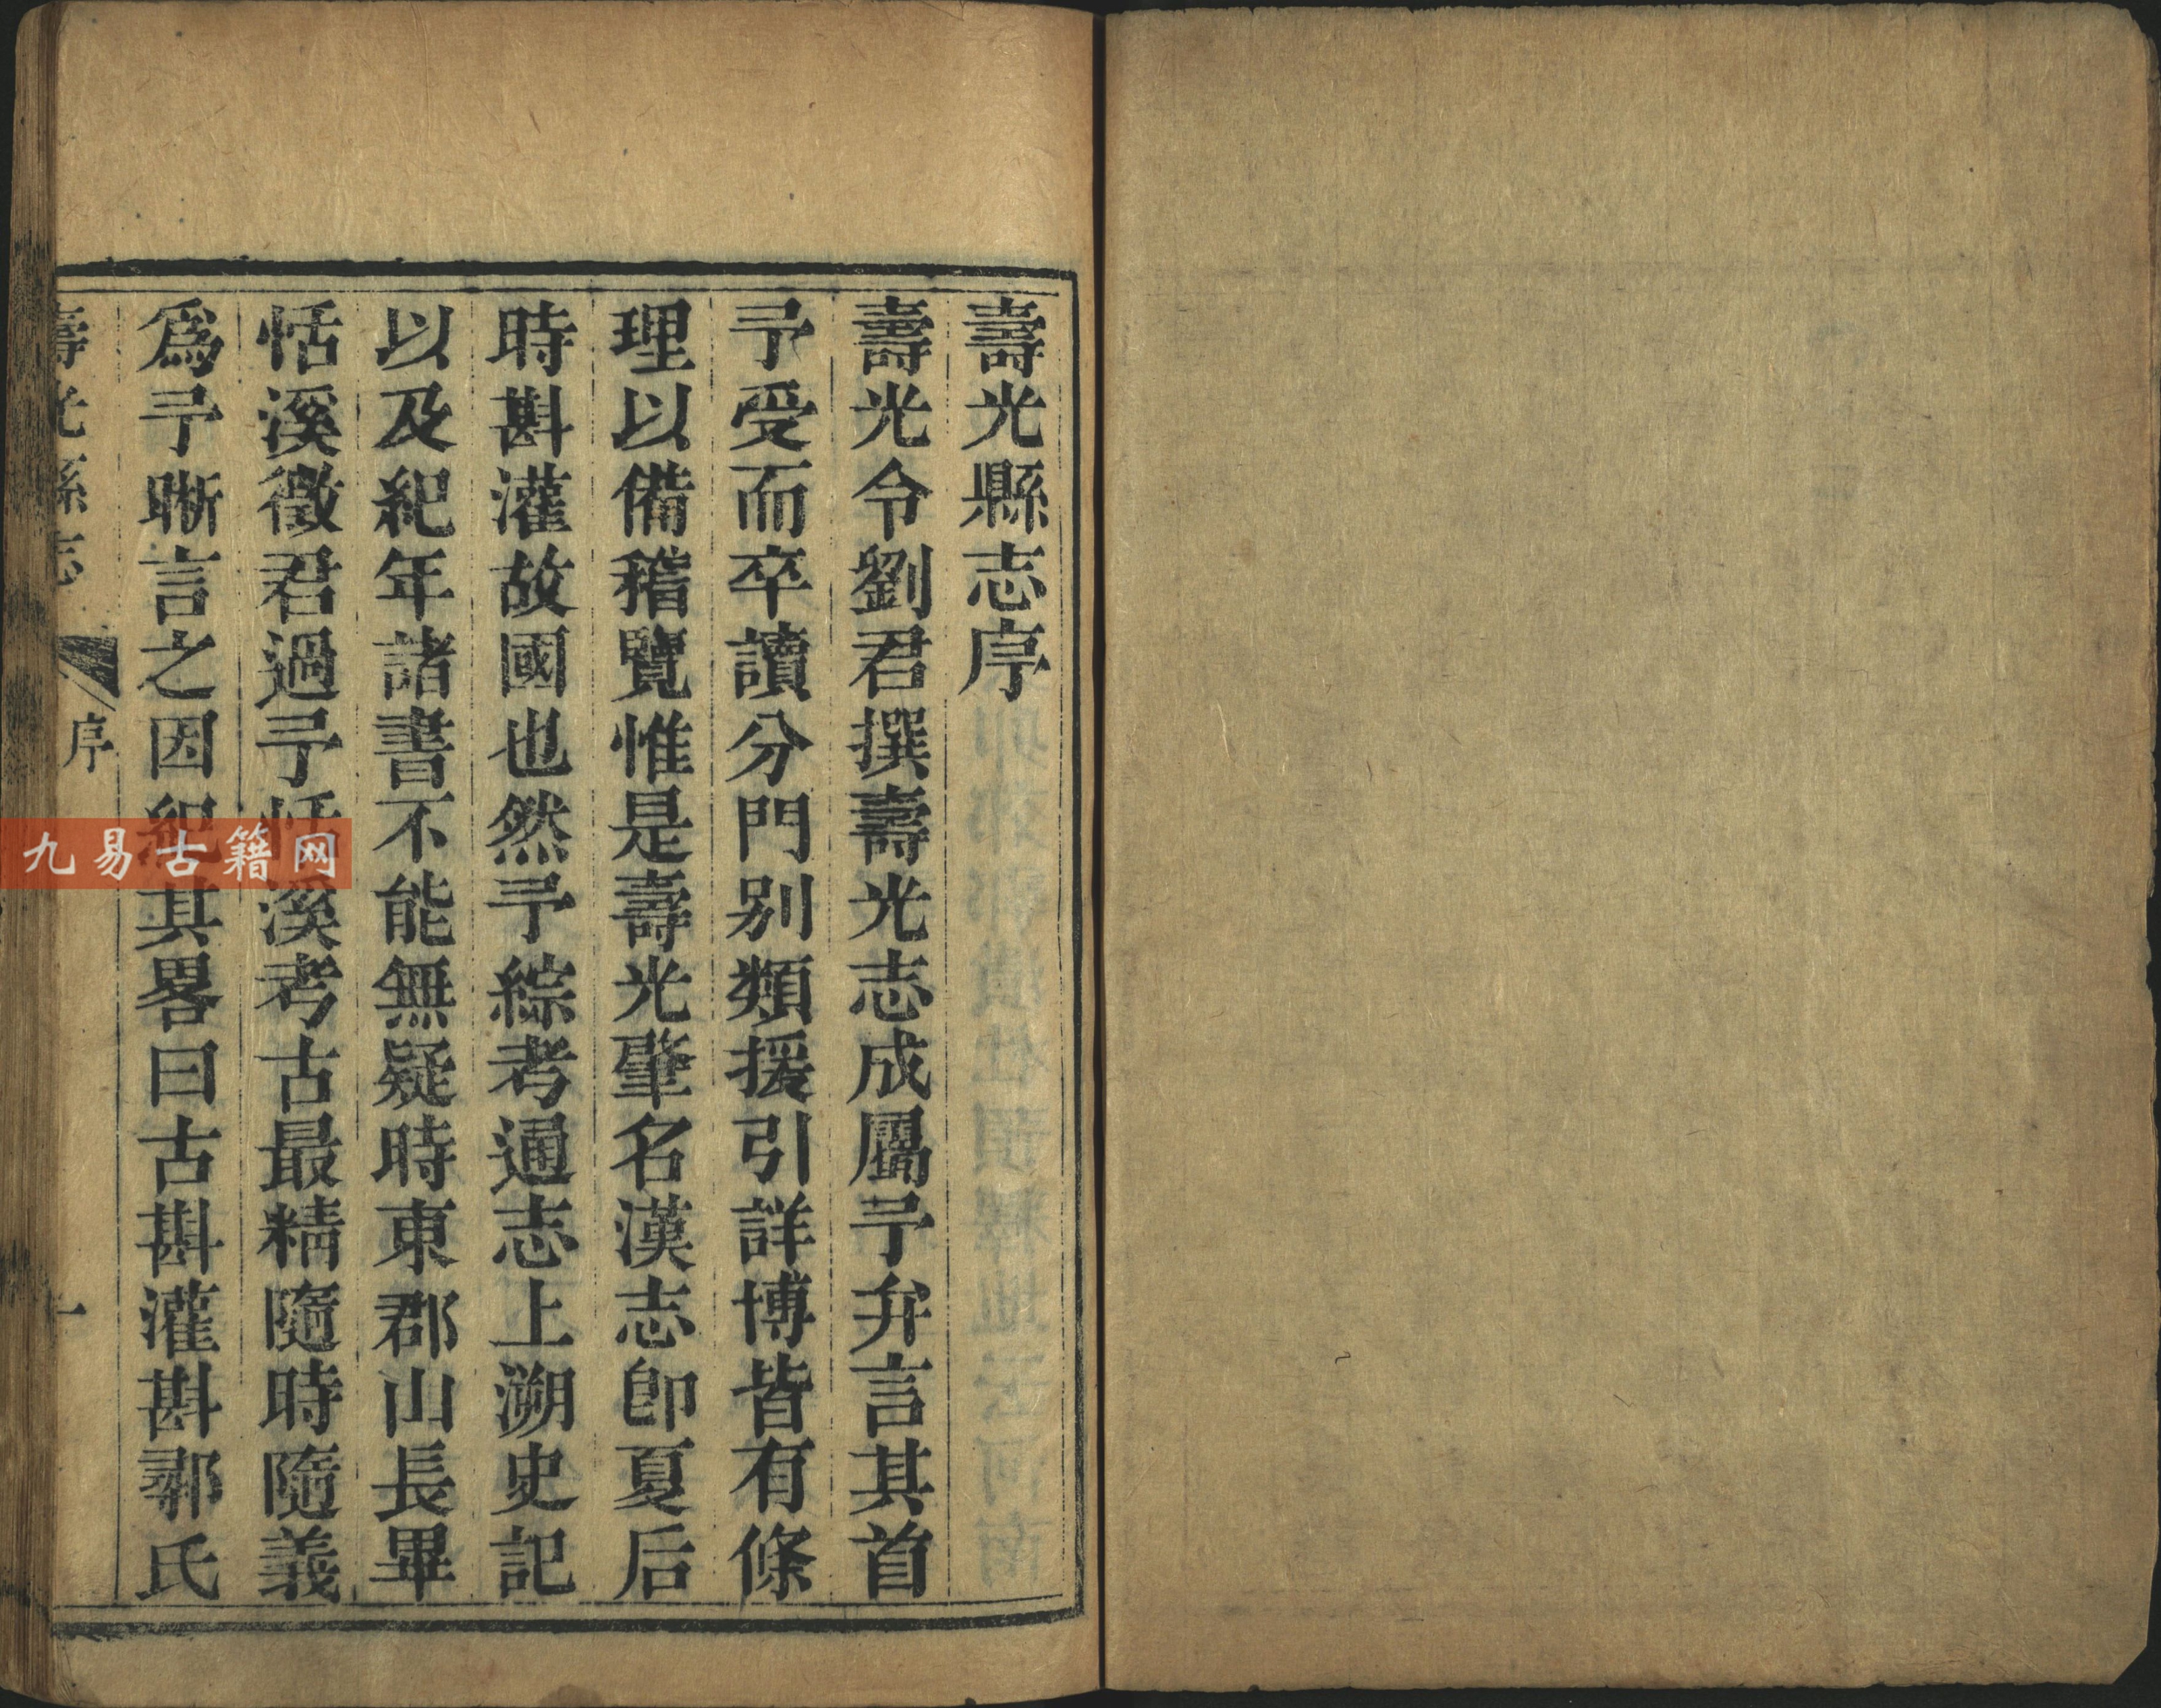 壽光縣志序
壽光令劉君撰壽光志成屬予弁言其首
予受而卒讀分門别類援引詳博皆有條
理以備稽覽惟是壽光肇名漢志卽夏后
時斟灌故國也然予綜考通志上溯史記
以及紀年諸書不能無疑時東郡山長畢
恬溪徵君過予恬溪考古最精隨時隨義
爲予晰言之因紀其畧曰古斟灌斟鄩氏
壽光縣志
序
一
九易古籍网